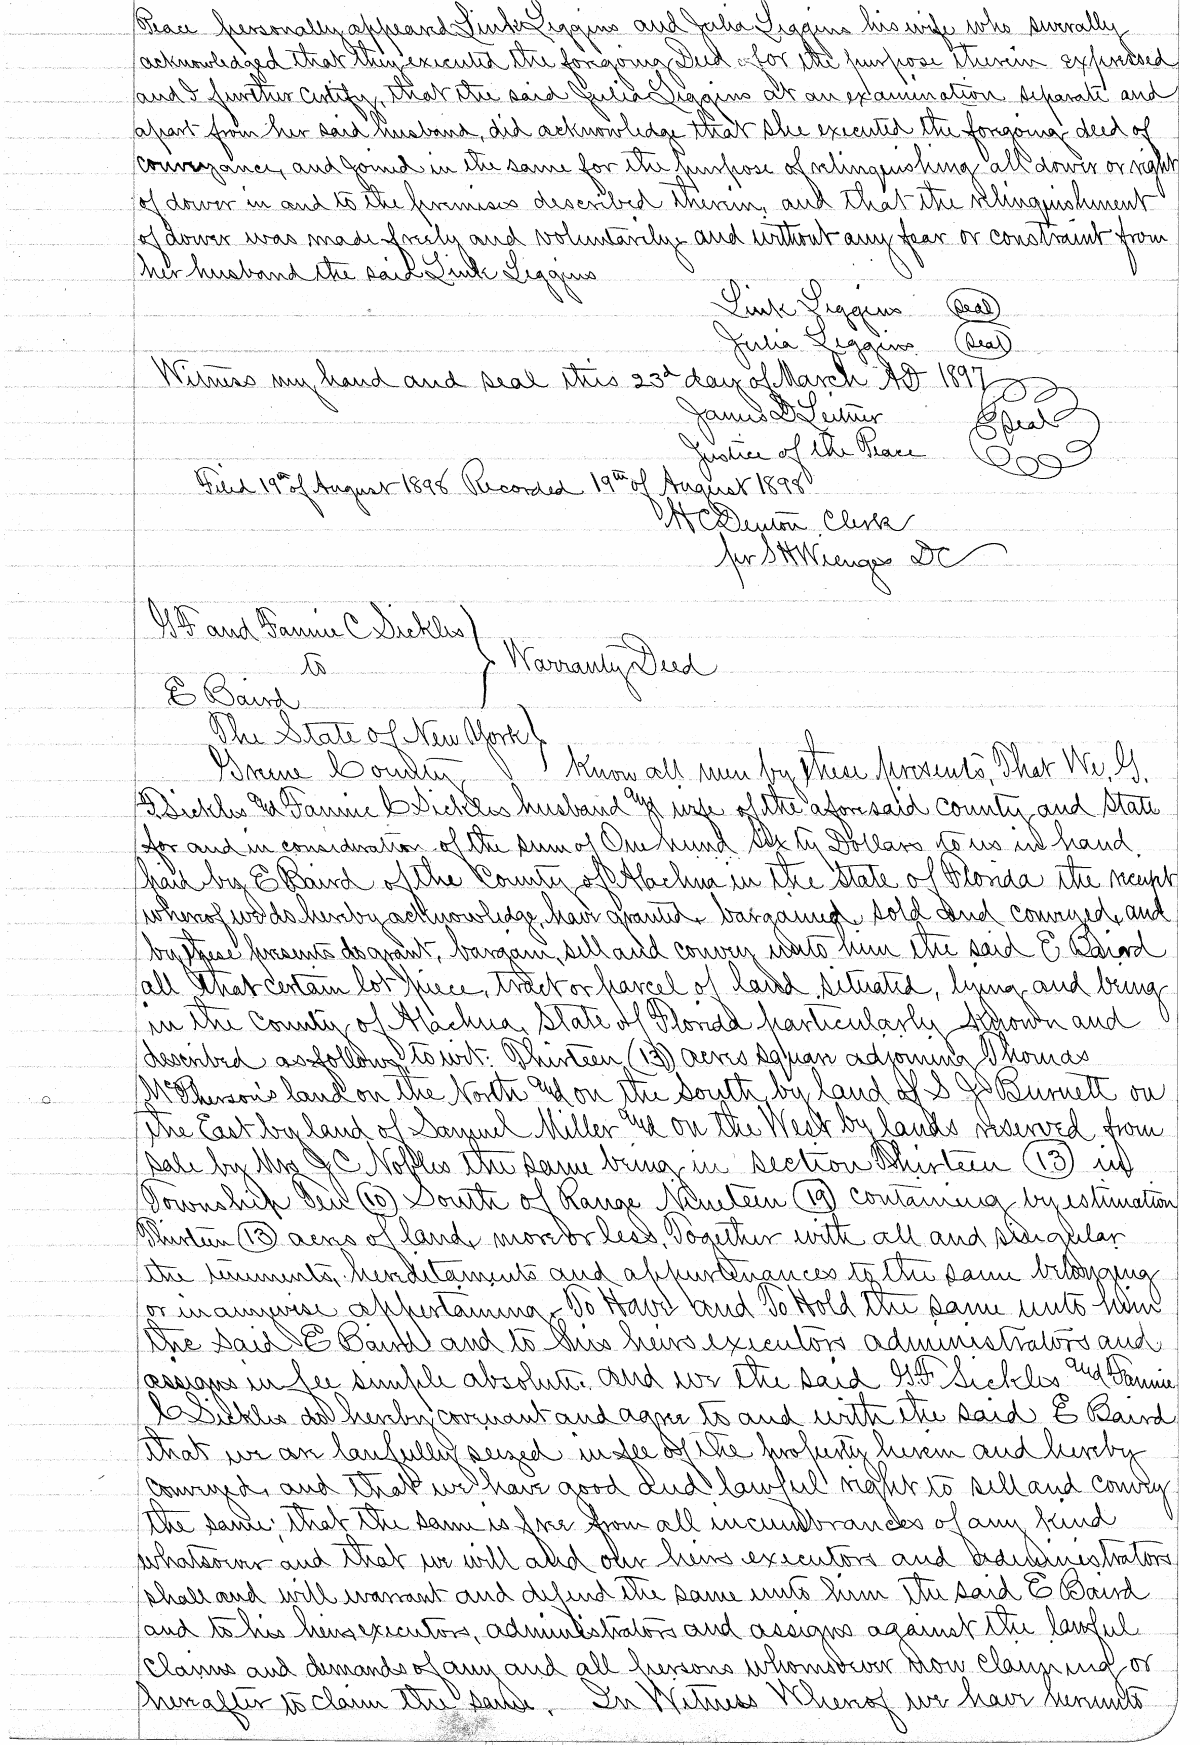 Peace personally appeared Link Liggins and Julia Liggins his wife who severally
acknowledged that they executed the forgoing Deed for the purpose therein expressed
and I further certify, that the said Julia Liggins at an examination separate and
apart from her said husband, did acknowledge that she executed the forgoing deed of
conveyance, and joined in the same for the purpose of relinquishing all dower or right
of dower in and to the premises described therein, and that the relinquishment
of dower was made freely and voluntarily and without any fear or constraint from
her husband the said Link Liggins
Link Liggins (Seal)
Julia Liggins (Seal)
Witness my hand and seal this 23d day of March AD 1897
James D Leitner Seal
Justice of the Peace
Filed 19th of August 1898 Recorded 19th of August 1898
H C Denton, Clerk
per S H Wienges DC
G F and Fannie C Sickles
to } Warranty Deed
E Baird
The State of New York }
Greene County } Know all men by these presents, That We, G.
F Sickles and Fannie C Sickles husband and wife of the aforesaid county and State
for and in consideration of the sum of One hund Sixty Dollars to us in hand
paid by E Baird of the County of Alachua in the State of Florida the receipt
whereof we do hereby acknowledge, have granted, bargained, sold and conveyed, and
by these presents do grant, bargain, sell and convey unto him the said E Baird
all that certain lot piece, tract or parcel of land, situated, lying and being
in the County of Alachua, State of Florida particularly known and
described as follows, to wit: Thirteen (13) acres square adjoining Thomas
McPherson's land on the North and on the South, by land of S J Burnett on
the East by land of Samuel Miller and on the West by lands reserved from
sale by Mrs J C Nofles the same being in section Thirteen (13) in
Township Ten (10) South of Range Nineteen (19) containing by estimation
Thirteen (13) acres of land, more or less, Together with all and singular
the tenements, hereditaments and appurtenances to the same belonging
or in anywise appertaining, To Have and To Hold the same unto him
the said E Baird and to his heirs executors administrators and
assigns in fee simple absolute. and we the said G.F Sickles and Fannie
C Sickles do hereby covenant and agree to and with the said E Baird
that we are lawfully seized in fee of the property herein and hereby
conveyed, and that we have good and lawful right to sell and convey
the same; that the same is free from all incumbrances of any kind
whatsoever and that we will and our heirs executors and administrators
shall and will warrant and defend the same unto him the said E Baird
and to his heirs, executors, administrators and assigns against the lawful
claims and demands of any and all persons whomsoever now claiming or
hereafter to claim the same. In Witness Whereof we have hereunto